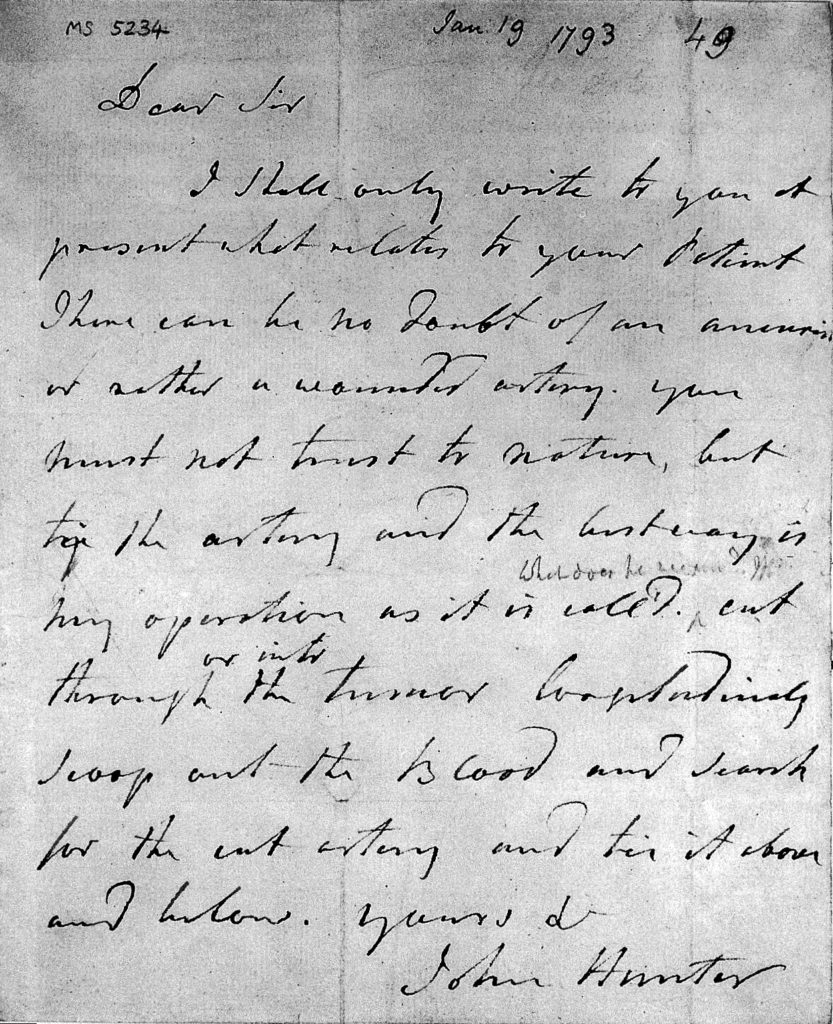 MS 5234
Jan. 19 1793 49
Dear Sir
I shall only write to you at
present what relates to your Patient
There can be no doubt of an aneurism
or rather a wounded artery. you
must not trust to nature, but
tie the artery and the best way is
What does he mean?
my operation as it is called. cut
or into
through the tumor longitudinaly
scoop out the Blood and search
for the cut artery and tie it above
and below. yours &c
John Hunter